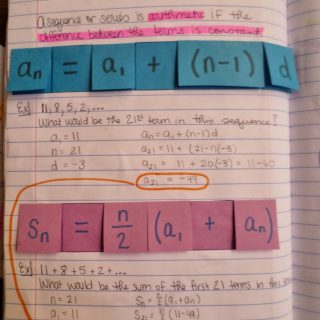 a sequence or series is arithmetic if the
difference between the terms is constant
aₙ = a₁ + (n-1) d
Ex) 11, 8, 5, 2, ...
What would be the 21st term in this sequence?
a₁ = 11 aₙ = a₁ + (n-1)d
n = 21 a₂₁ = 11 + (21-1)(-3)
d = -3 a₂₁ = 11 + 20(-3) = 11-60
a₂₁ = -49
Sₙ = n/2 (a₁ + aₙ)
Ex) 11 + 8 + 5 + 2 + ...
What would be the sum of the first 21 terms in this
n = 21 Sₙ = n/2 (a₁ + aₙ)
a₁ = 11 S₂₁ = 21/2 (11-49)